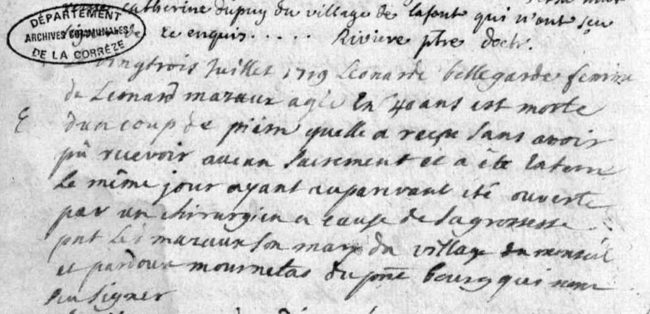 Catherine dupuy du village de lafont qui n'ont sçu
de ce enquis..... Riviere ptre doctr.
DÉPARTEMENT
ARCHIVES COMMUNALES
DE LA CORRÈZE
vingtrois Juillet 1719 Leonarde bellegarde femme
de Leonard mazaux agée En 40 ans est morte
dun coup de pierre quelle a reçu Sans avoir
pû recevoir aucun Sacrement et a été Enterré
Le même jour ayant auparavant été ouverte
par un chirurgien a cause de Sa grossesse
pnt Leo mazaux Son mary du village du monteil
et pardoux mournetas du pnt bourg qui nont
Sçu Signer